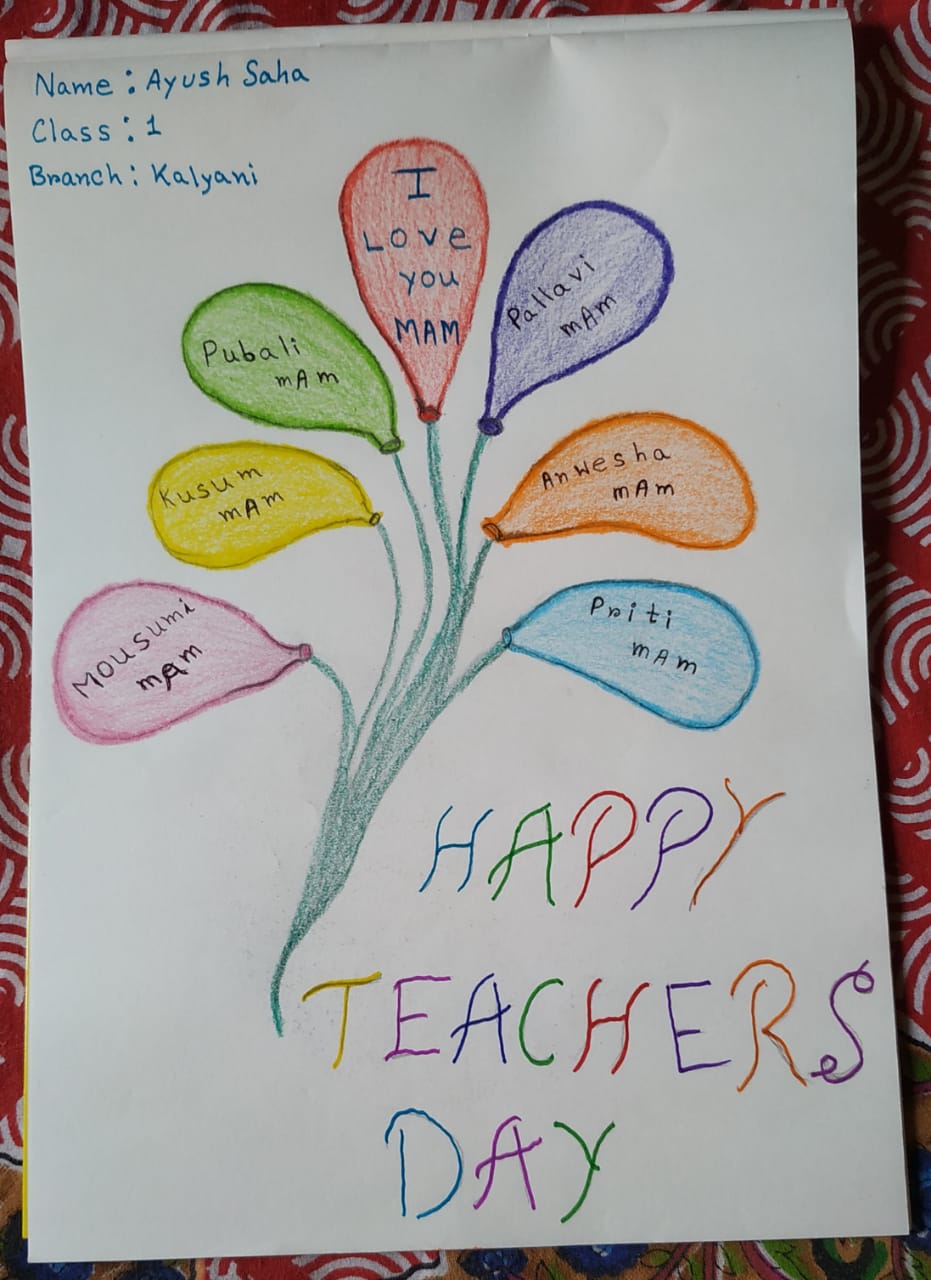 Name : Ayush Saha
Class : 1
Branch : Kalyani
I
Love
you
MAM
Pallavi
mAm
Pubali
mAm
Anwesha
mAm
Kusum
mAm
Priti
mAm
Mousumi
mAm
HAPPY
TEACHERS
DAY